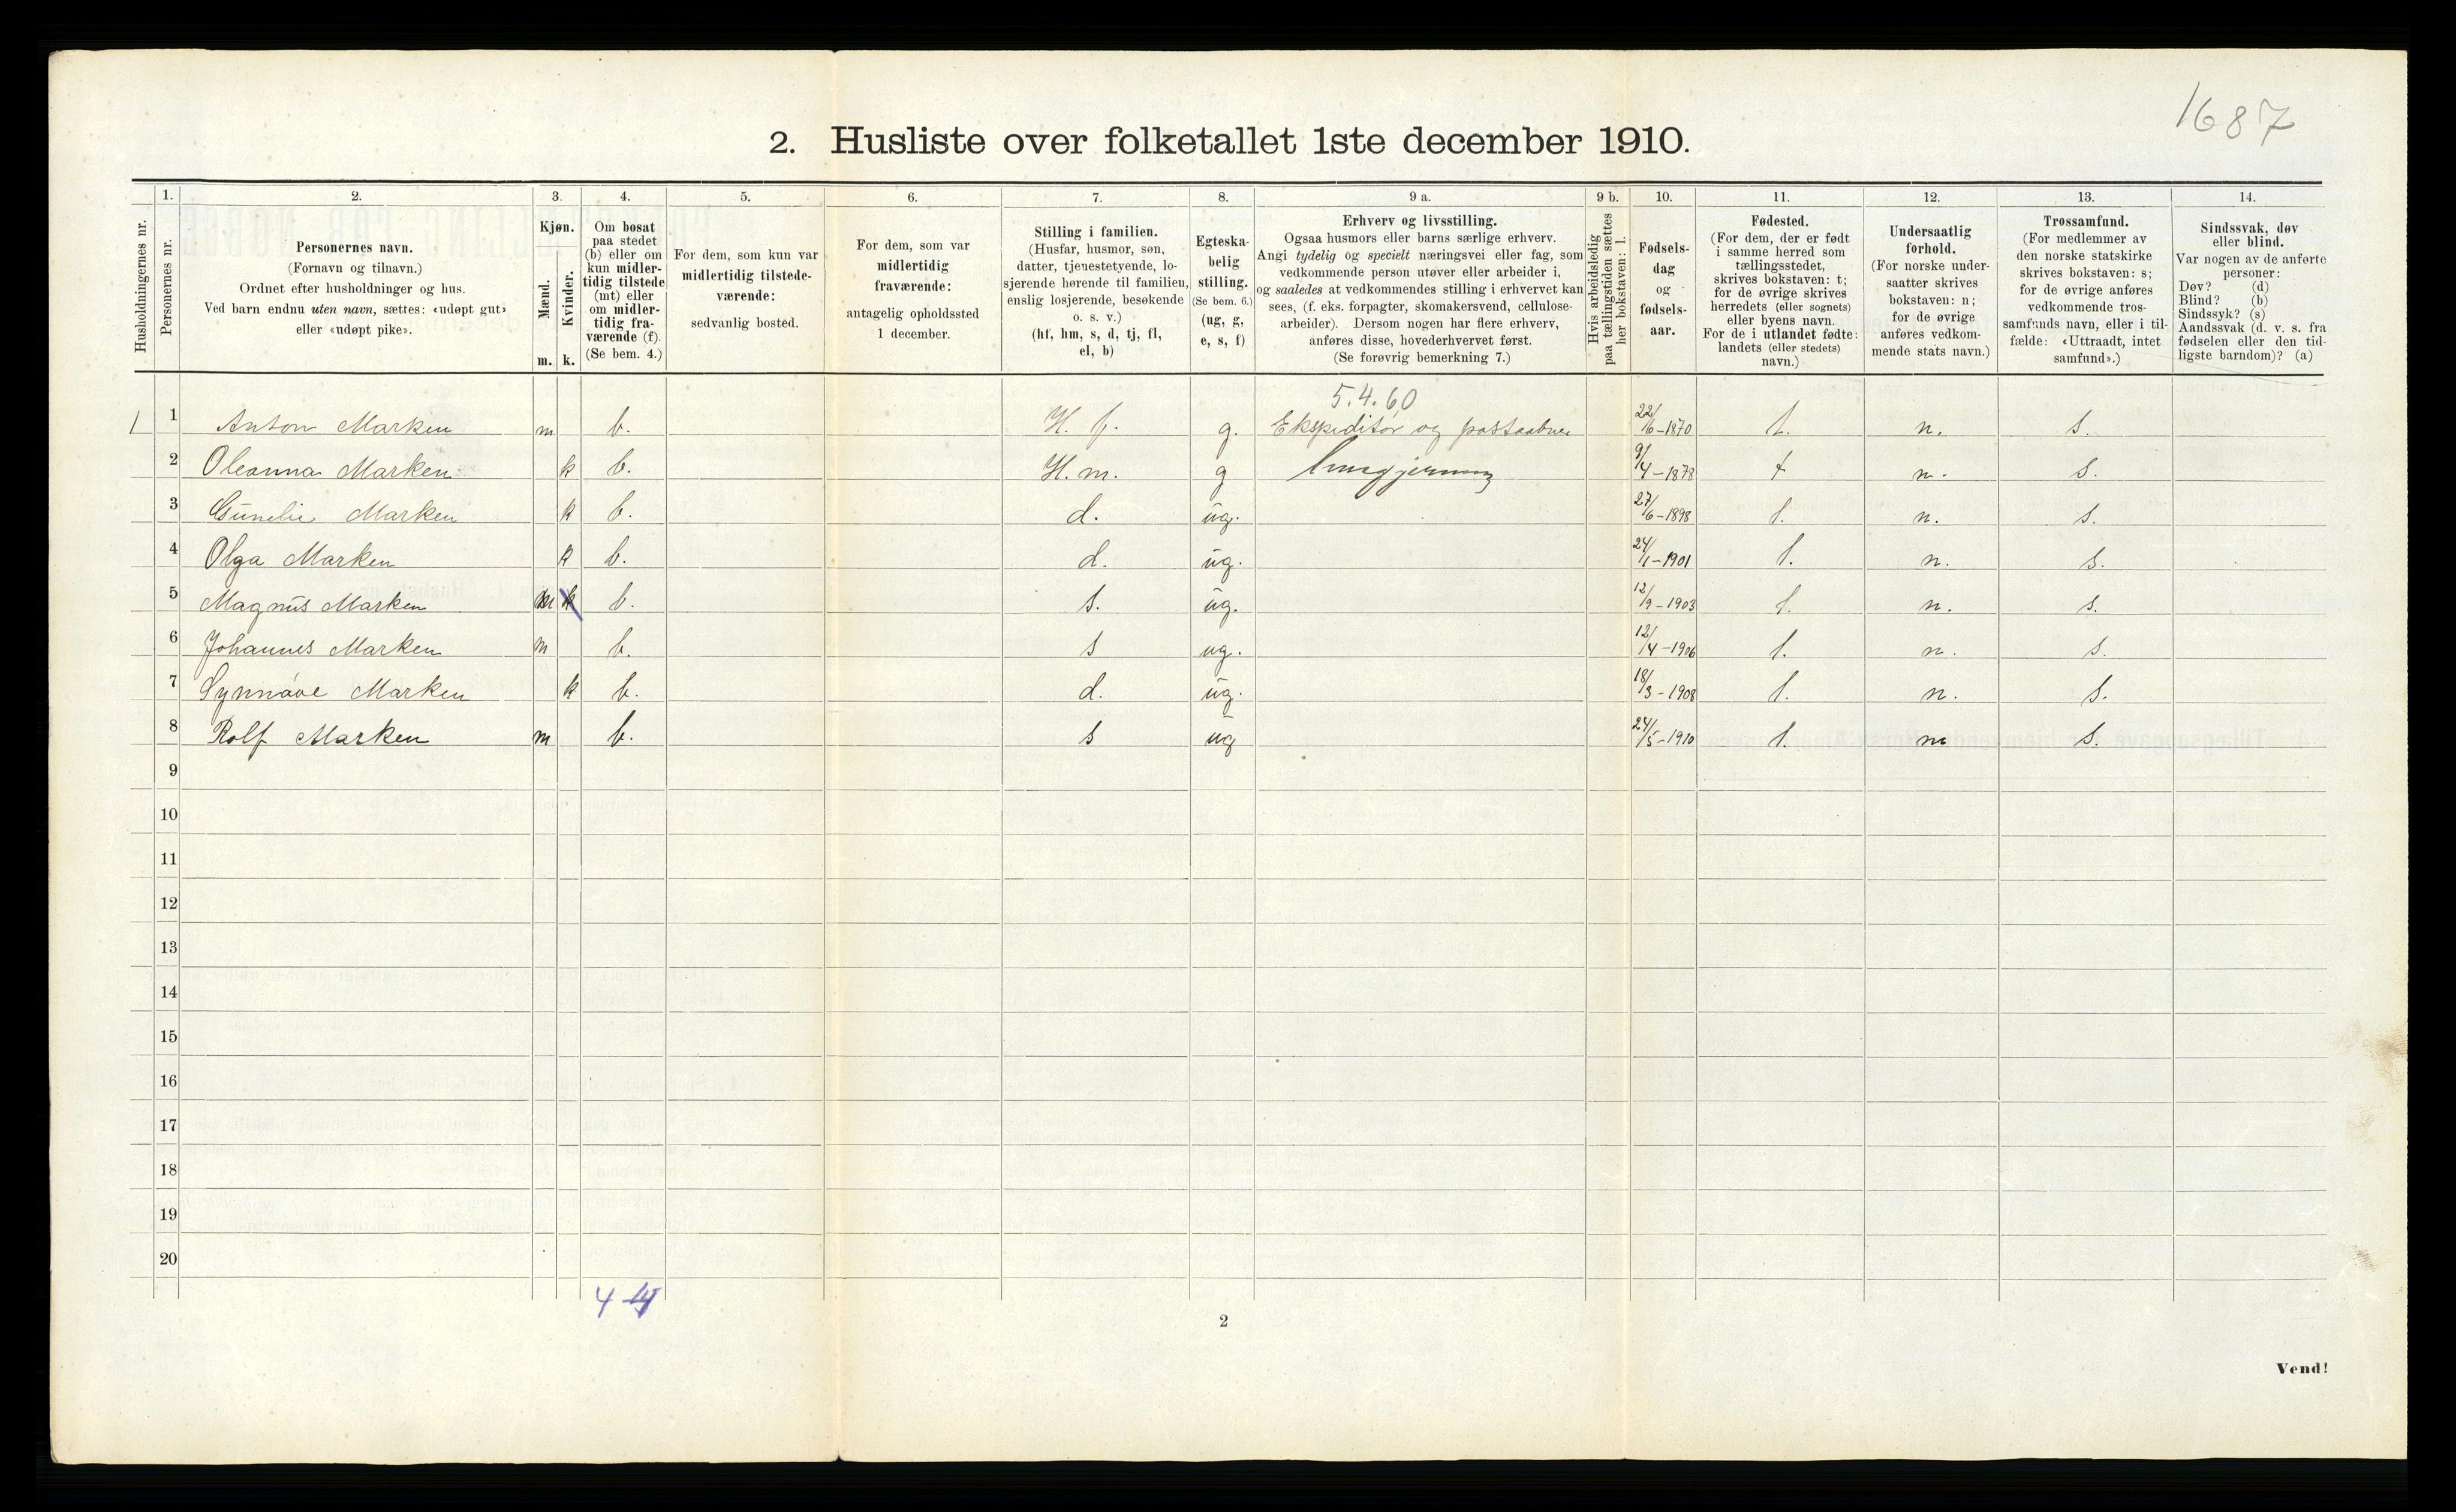 1687
2. Husliste over folketallet 1ste december 1910.
Husholdningernes nr.
1.
Personernes nr.
2.
Personernes navn.
(Fornavn og tilnavn.)
Ordnet efter husholdninger og hus.
Ved barn endnu uten navn, sættes: «udøpt gut»
eller «udøpt pike».
3.
Kjøn.
Mænd.
Kvinder.
m. k.
4.
Om bosat
paa stedet
(b) eller om
kun midler-
tidig tilstede
(mt) eller
om midler-
tidig fra-
værende (f).
(Se bem. 4.)
5.
For dem, som kun var
midlertidig tilstede-
værende:
sedvanlig bosted.
6.
For dem, som var
midlertidig
fraværende:
antagelig opholdssted
1 december.
7.
Stilling i familien.
(Husfar, husmor, søn,
datter, tjenestetyende, lo-
sjerende hørende til familien,
enslig losjerende, besøkende
o. s. v.)
(hf, hm, s, d, tj, fl,
el, b)
8.
Egteska-
belig
stilling.
(Se bem. 6.)
(ug, g,
e, s, f)
9 a.
Erhverv og livsstilling.
Ogsaa husmors eller barns særlige erhverv.
Angi tydelig og specielt næringsvei eller fag, som
vedkommende person utøver eller arbeider i,
og saaledes at vedkommendes stilling i erhvervet kan
sees, (f. eks. forpagter, skomakersvend, cellulose-
arbeider). Dersom nogen har flere erhverv,
anføres disse, hovederhvervet først.
(Se forøvrig bemerkning 7.)
9 b.
Hvis arbeidsledig
paa tællingstiden sættes
her bokstaven: l.
10.
Fødsels-
dag
og
fødsels-
aar.
11.
Fødested.
(For dem, der er født
i samme herred som
tællingsstedet,
skrives bokstaven: t;
for de øvrige skrives
herredets (eller sognets)
eller byens navn.
For de i utlandet fødte:
landets (eller stedets)
navn.)
12.
Undersaatlig
forhold.
(For norske under-
saatter skrives
bokstaven: n;
for de øvrige
anføres vedkom-
mende stats navn.)
13.
Trossamfund.
(For medlemmer av
den norske statskirke
skrives bokstaven: s;
for de øvrige anføres
vedkommende tros-
samfunds navn, eller i til-
fælde: «Uttraadt, intet
samfund».)
14.
Sindssvak, døv
eller blind.
Var nogen av de anførte
personer:
Døv? (d)
Blind? (b)
Sindssyk? (s)
Aandssvak (d. v. s. fra
fødselen eller den tid-
ligste barndom)? (a)
5.4.60
1 1 Anton Marken m b. H. f. g. Ekspeditør og postaabner 22/6-1870 t. n. s.
2 Oleanna Marken k b. H. m. g husgjerning 9/4-1878 t n. s.
3 Gunelie Marken k b. d. ug. 27/6-1898 t. n. s.
4 Olga Marken k b. d. ug. 24/1-1901 t. n. s.
5 Magnus Marken m k b. s. ug. 12/9-1903 t. n. s.
6 Johannes Marken m b. s ug. 12/4-1906 t. n. s.
7 Synnøve Marken k b. d. ug. 18/3-1908 t. n. s.
8 Rolf Marken m b. s ug 24/5-1910 t. n s.
9
10
11
12
13
14
15
16
17
18
19
20
4 4
2
Vend!